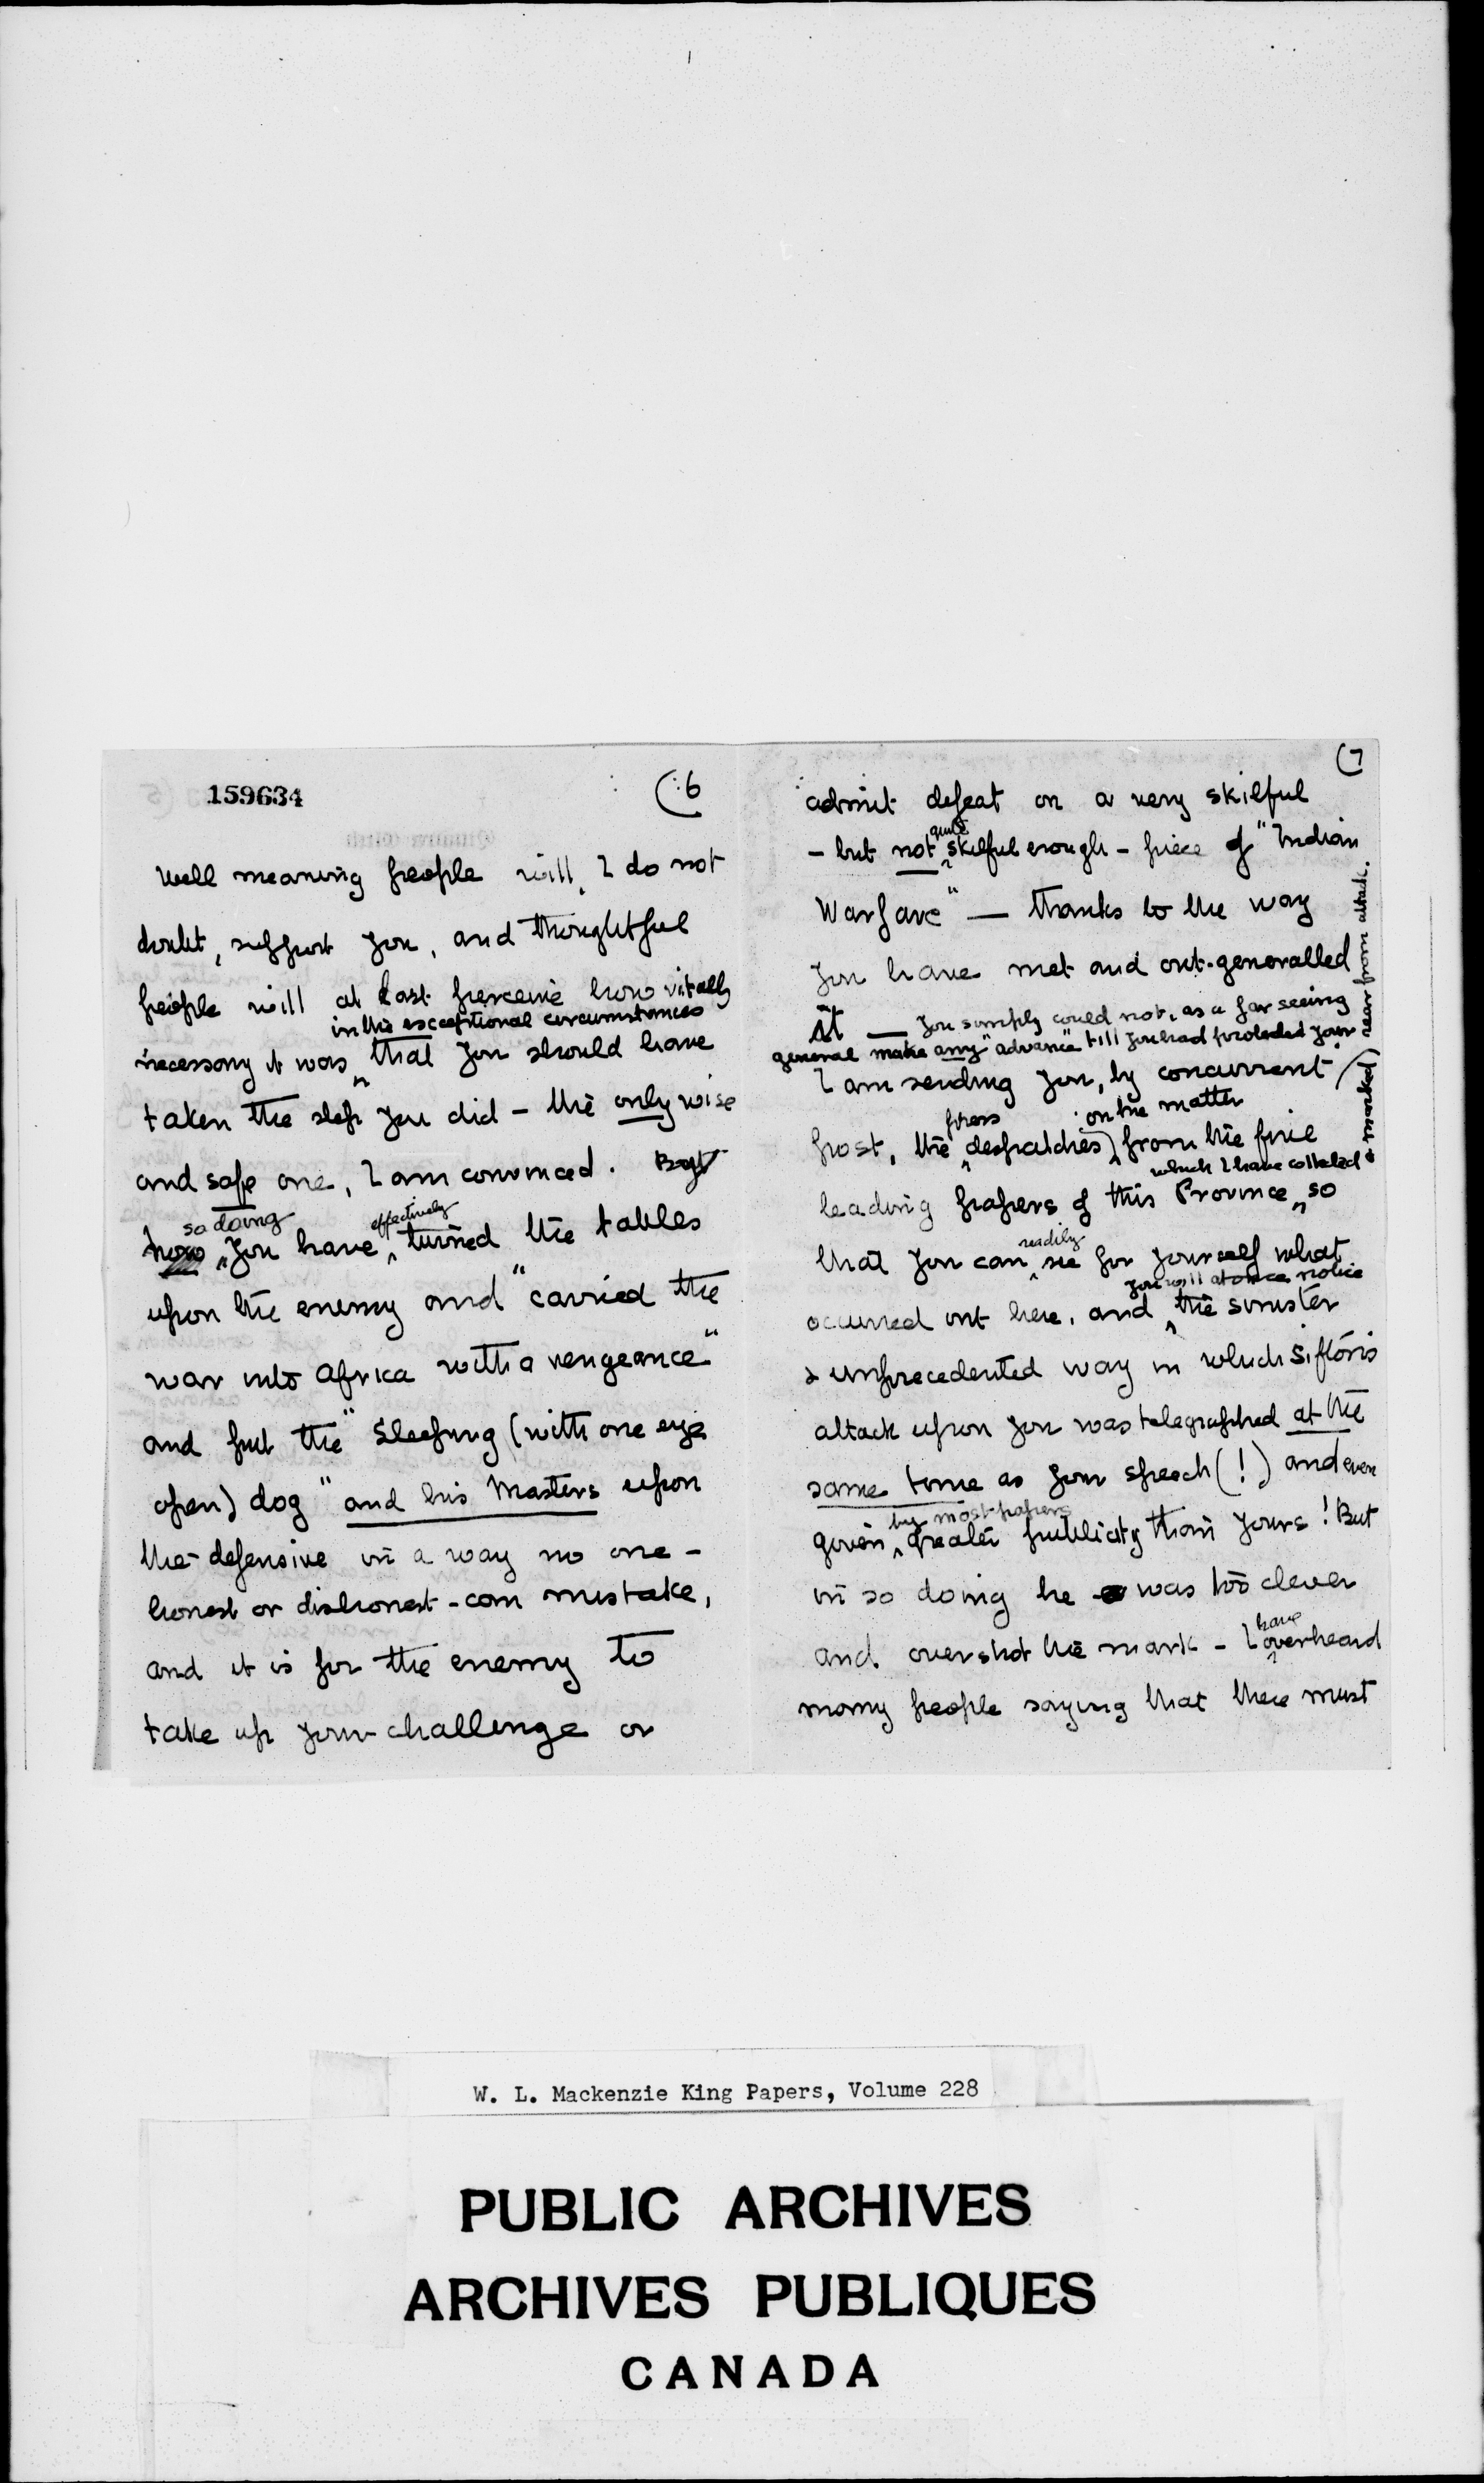 159634
(6
Well meaning people will, I do not
doubt, support you, and thoughtful
people will at last perceive how vitally
in the exceptional circumstances
necessary it was ^ that you should have
taken the step you did – the only wise
and safe one, I am convinced. By
so doing effectively
^ you have ^ turned the tables
upon the enemy and "carried the
war into Africa with a vengeance"
and put the "Sleeping (with one eye
open) dog" and his Masters upon
the defensive in a way no one –
honest or dishonest – can mistake,
and it is for the enemy to
take up your challenge or
(7
admit defeat on a very skilful
quite
– but not ^ skilful enough – piece of "Indian
Warfare" — thanks to the way
you have met and out-generalled
it — You simply could not, as a far seeing
general make any "advance" till you had protected your
rear from attack.
I am sending you, by concurrent
press on the matter
post, the ^ despatches ^ from the five
which I have collated &
marked)
leading papers of this Province ^ so
readily
that you can ^ see for yourself what
you will at once notice
occurred out here, and ^ the sinister
& unprecedented way in which Sifton's
attack upon you was telegraphed at the
same time as your speech (!) and even
by most papers
given ^ greater publicity than yours! But
in so doing he was too clever
have
and overshot the mark – I ^ overheard
many people saying that there must
W. L. Mackenzie King Papers, Volume 228
PUBLIC ARCHIVES
ARCHIVES PUBLIQUES
CANADA